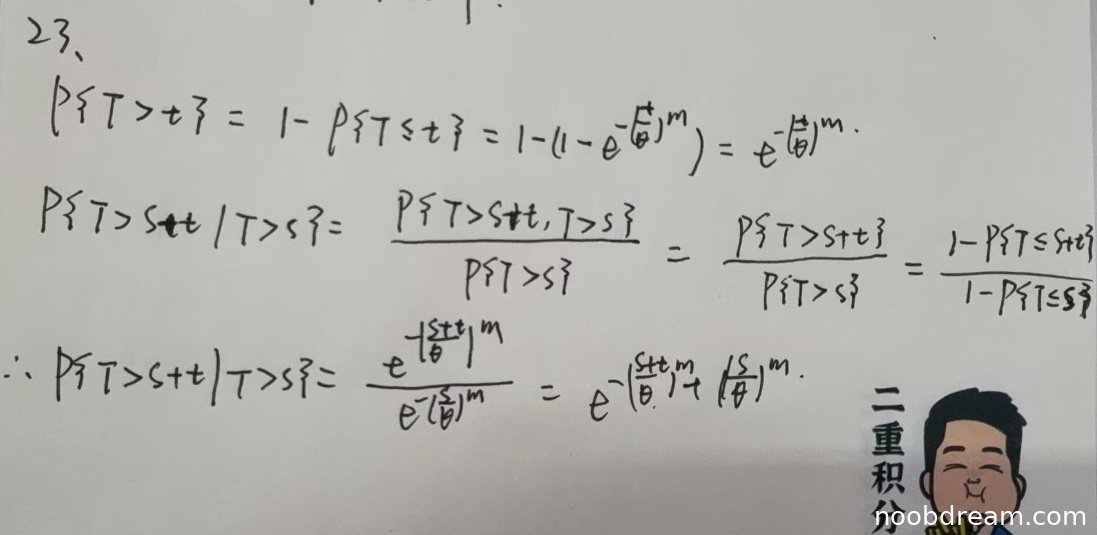 23、
P{T>t} = 1-P{T≤t} = 1-(1-e^{-(t/θ)^m}) = e^{-(t/θ)^m}.
P{T>s+t|T>s} = P{T>s+t,T>s}/P{T>s} = P{T>s+t}/P{T>s} = 1-P{T≤s+t}/1-P{T≤s}
∴ P{T>s+t|T>s} = e^{-(s+t/θ)^m}/e^{-(s/θ)^m} = e^{-(s+t/θ)^m+(s/θ)^m}.
二重积分
noobdream.com